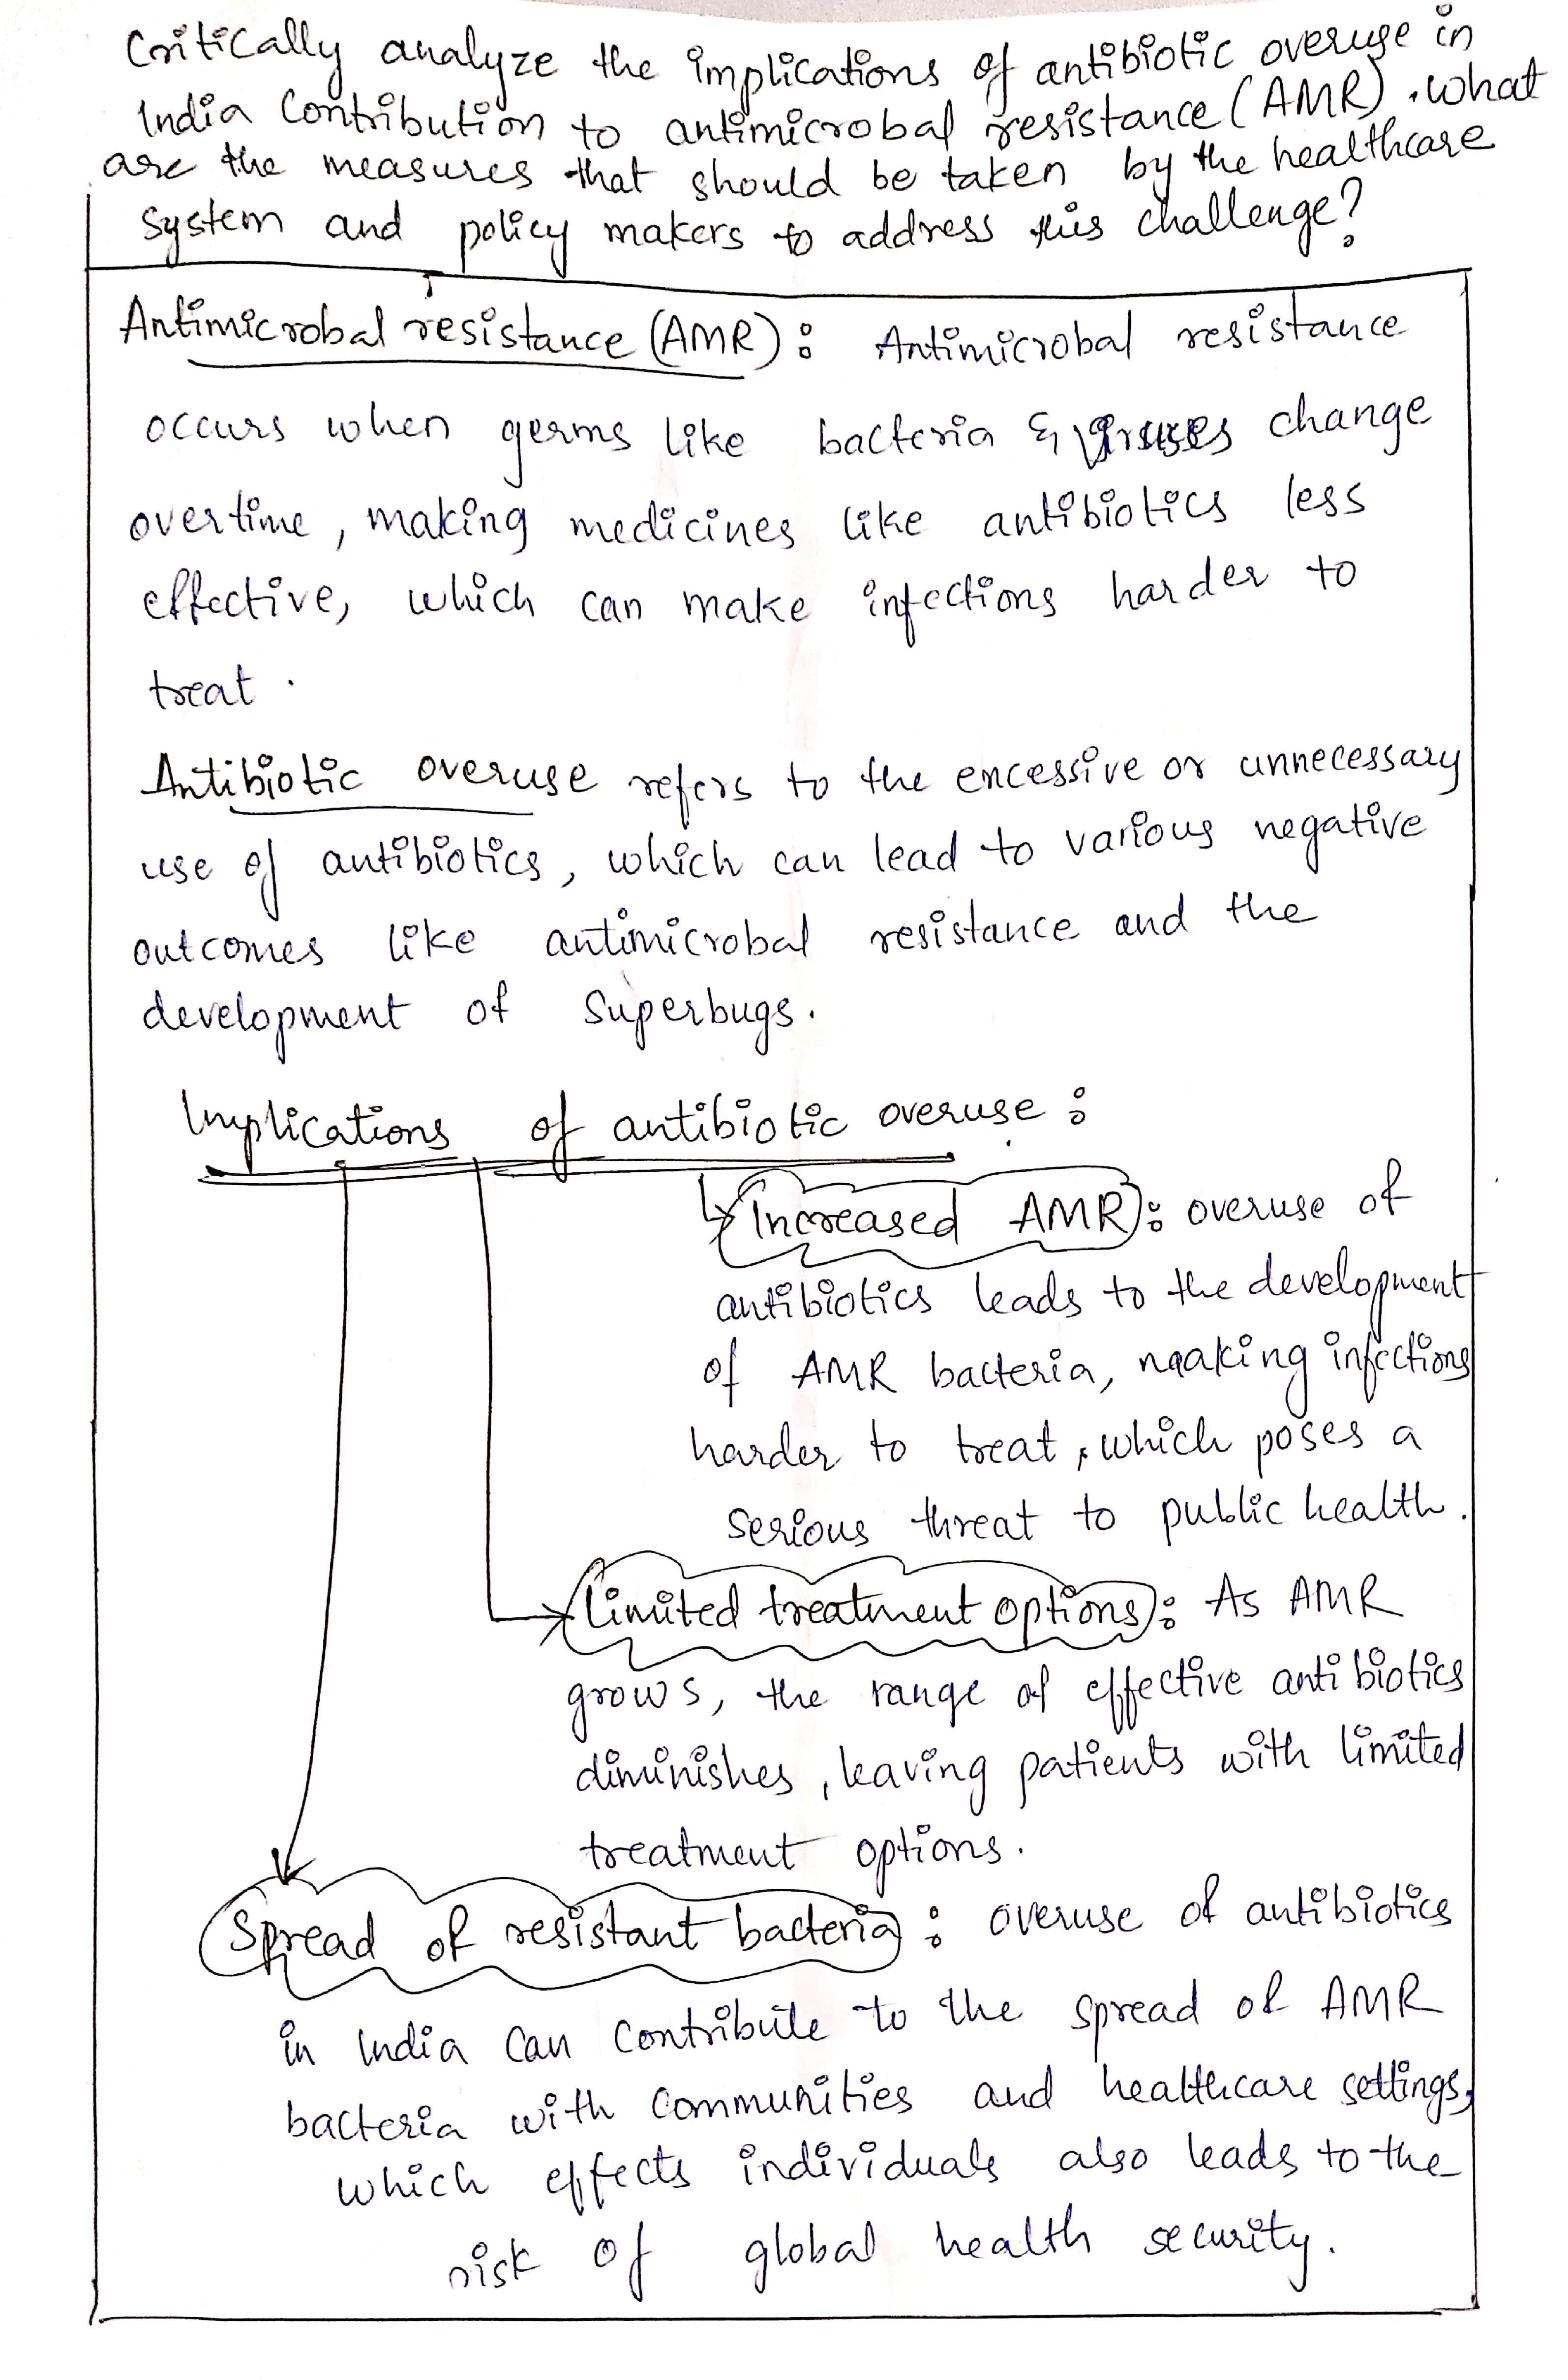 Critically analyze the implications of antibiotic overuse in
India Contribution to antimicrobal resistance (AMR). what
are the measures that should be taken by the healthcare
system and policy makers to address this challenge?
Antimicrobal resistance (AMR): Antimicrobal resistance
occurs when germs like bacteria & viruses change
overtime, making medicines like antibiotics less
effective, which can make infections harder to
treat.
Antibiotic overuse refers to the excessive or unnecessary
use of antibiotics, which can lead to various negative
outcomes like antimicrobal resistance and the
development of Superbugs.
Implications of antibiotic overuse:
Increased AMR: overuse of
antibiotics leads to the development
of AMR bacteria, making infections
harder to treat, which poses a
serious threat to public health.
Limited treatment options: As AMR
grows, the range of effective antibiotics
diminishes, leaving patients with limited
treatment options.
Spread of resistant bacteria: overuse of antibiotics
in India can contribute to the spread of AMR
bacteria with communities and healthcare settings,
which effects individuals also leads to the
risk of global health security.